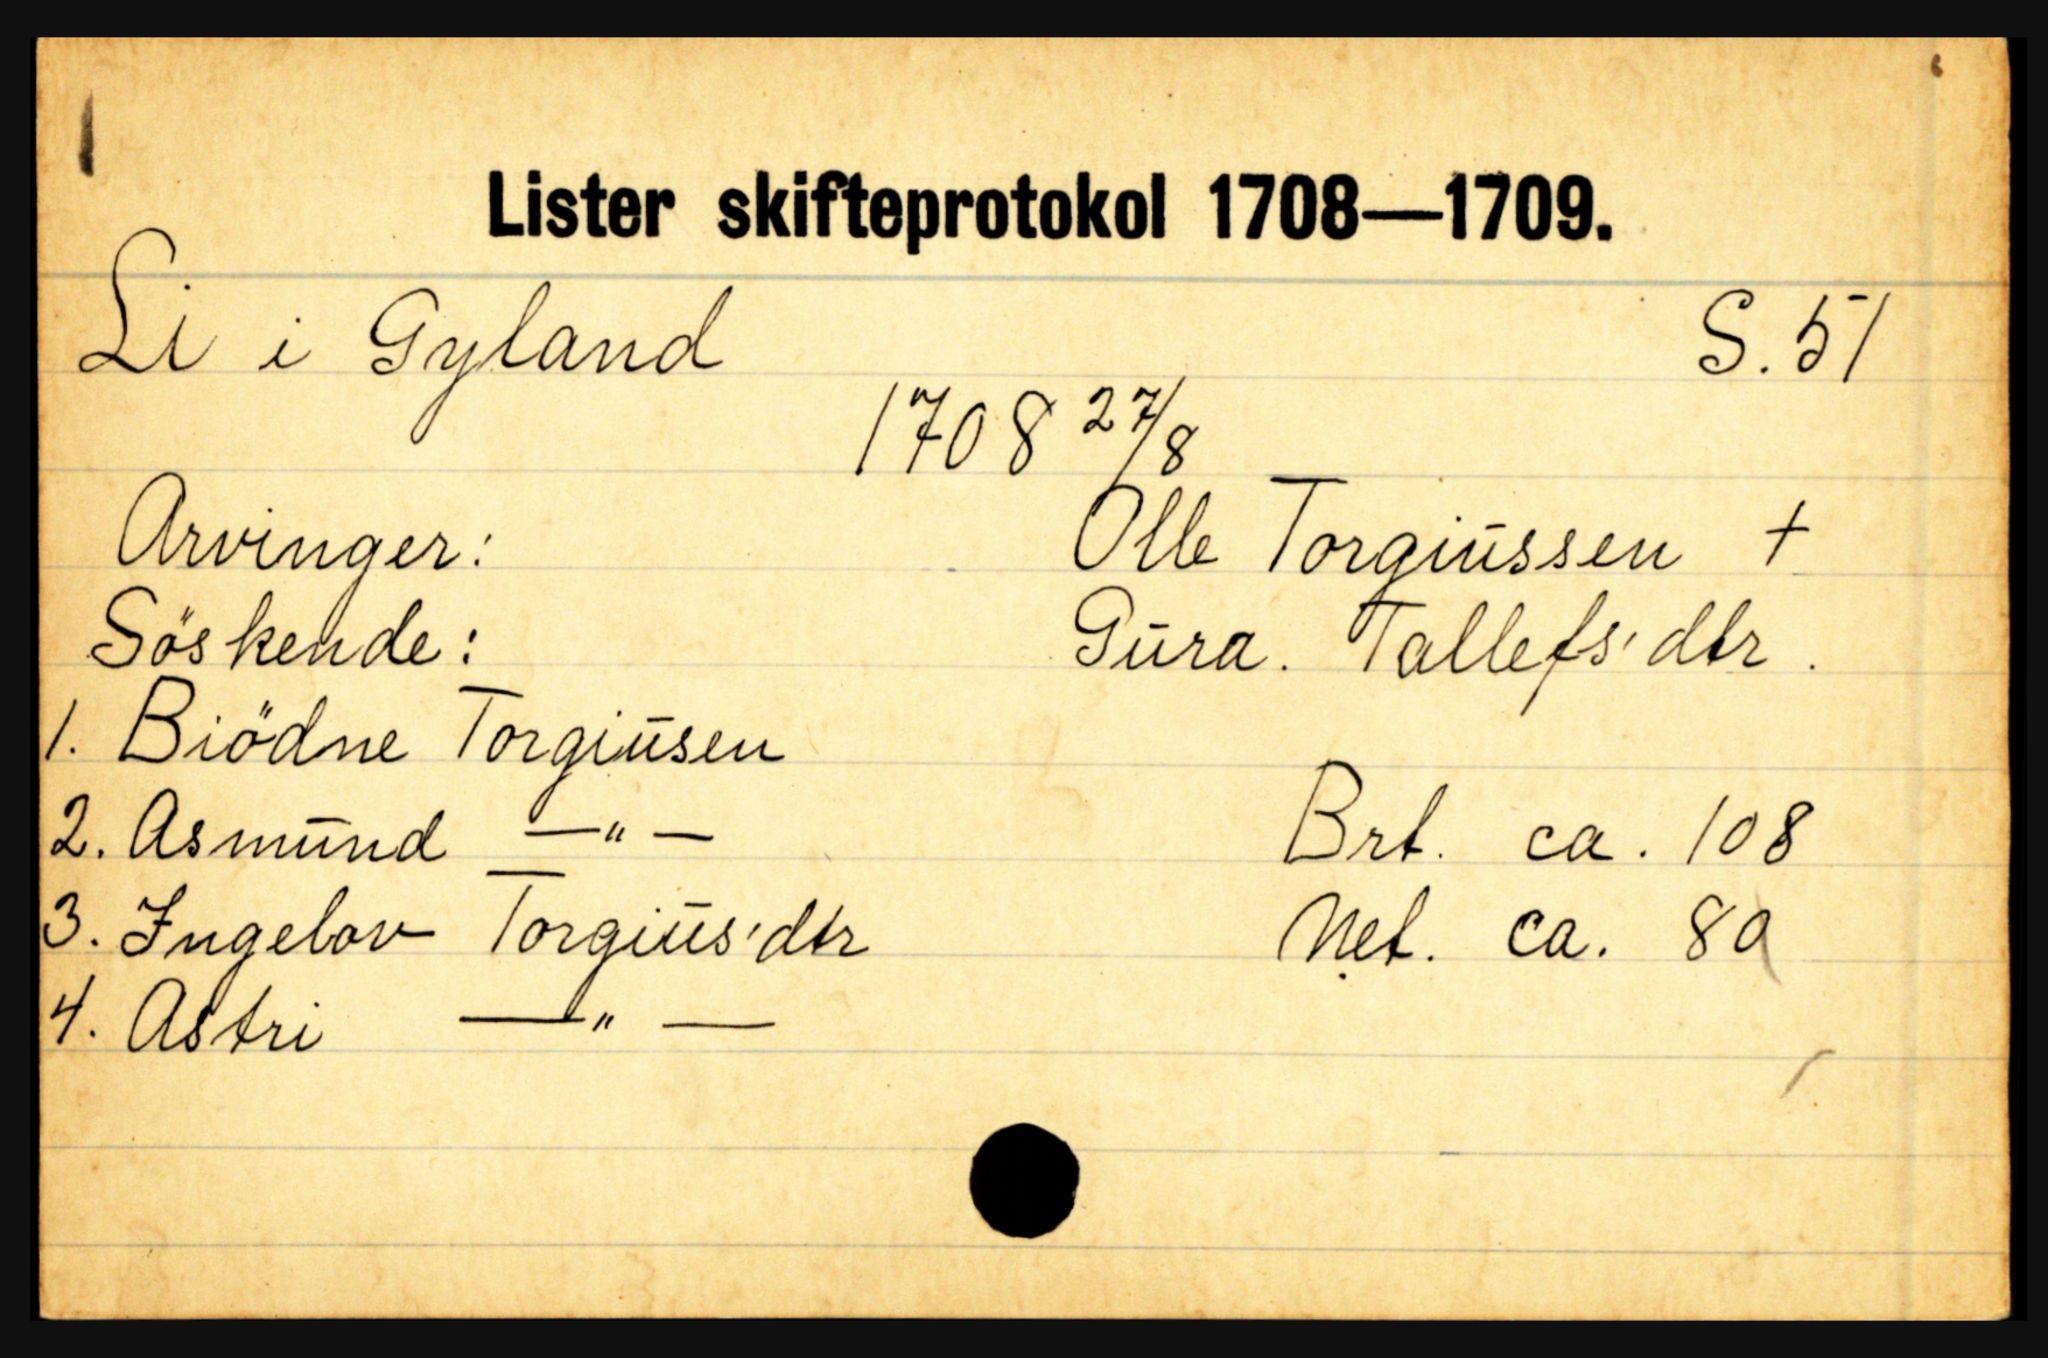 Lister skifteprotokol 1708—1709.
Li i Gyland S. 51
1708 27/8
Arvinger: Olle Torgiussen +
Söskende: Gura. Tallefs'dtr.
1. Biödne Torgiusen
2. Asmund —"— Brt. ca. 108
3. Ingelov Torgius'dtr Net. ca. 80
4. Astri —"—